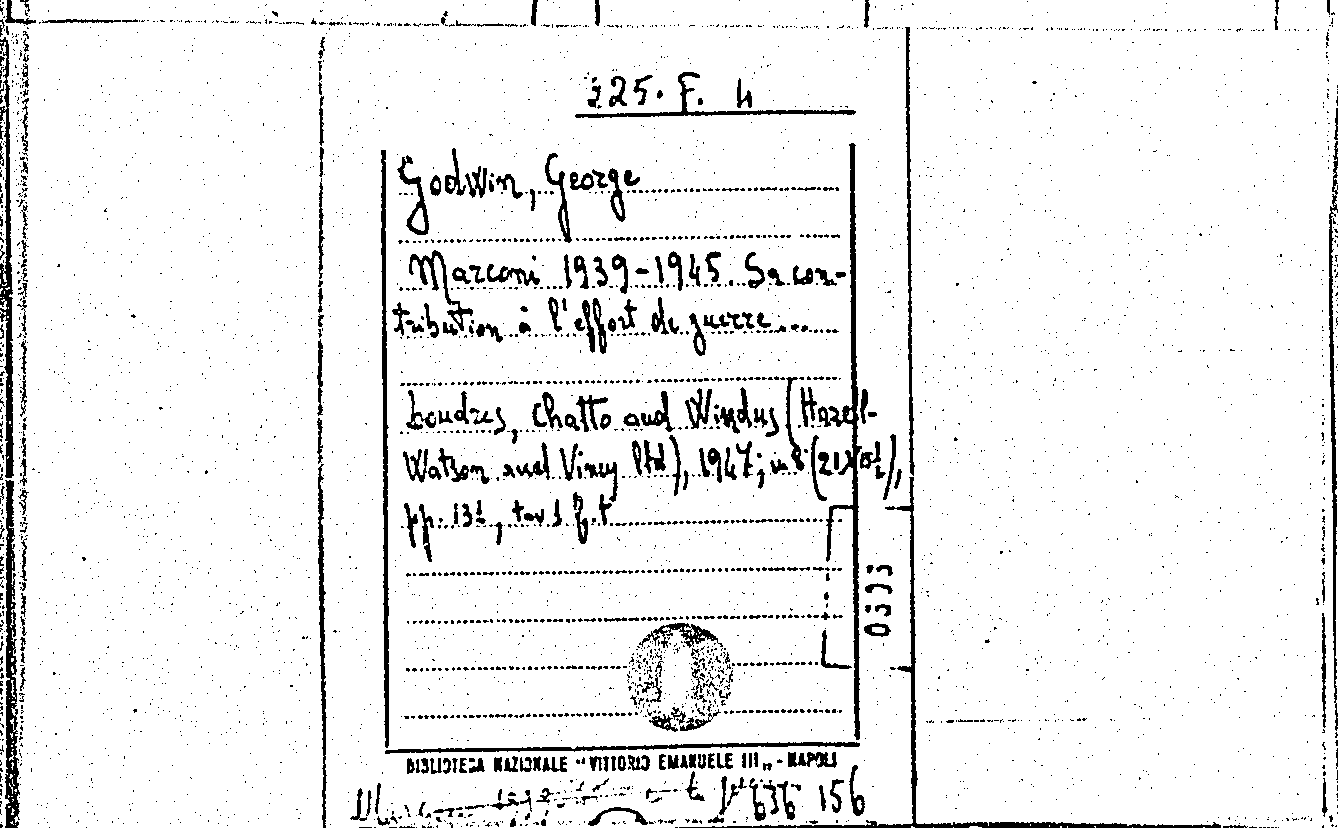 225. F. 4
Godwin, George
Marconi 1939-1945. Sa con-
tribution à l'effort de guerre...
Londres, Chatto and Windus (Hazell-
Watson and Viney ltd), 1947; in 8°
pp. 131, tav 1 f.t
BIBLIOTECA NAZIONALE "VITTORIO EMANUELE III„ - NAPOLI
636 156